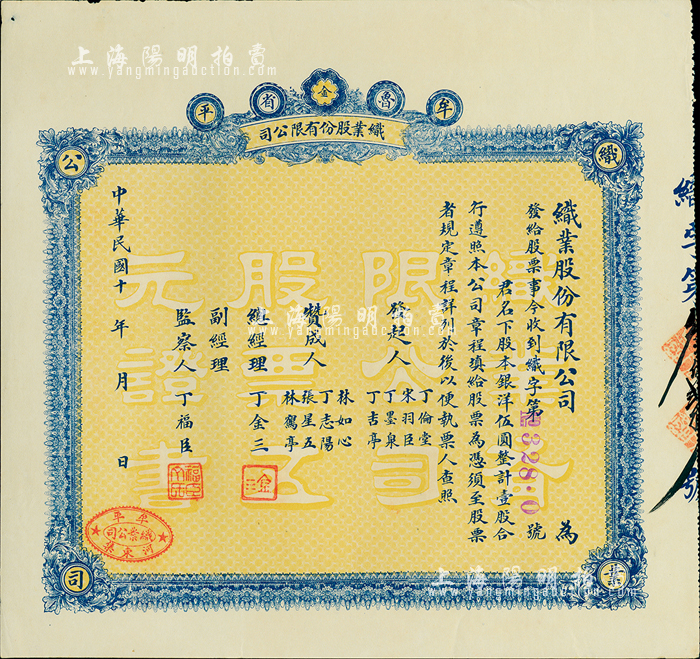 上海陽明拍賣
www.yangmingauction.com
牟魯金省平
織業股份有限公司
織業公司
織業股份有限公司為
發給股票事今收到織字第328:0號
君名下股本銀洋伍圓整計壹股合
行遵照本公司章程填給股票為憑須至股票
者規定章程詳列於後以便執票人查照
發起人
丁倫堂
宋羽臣
丁墨泉
丁吉亭
贊成人
林如心
丁志陽
張星五
林鶴亭
總經理 丁金三
副經理
監察人 丁福臣
中華民國十 年 月 日
織業
限公司
股票五
元證書
牟平
織業公司
河東裝
上海陽明拍賣
www.yangmingauction.com